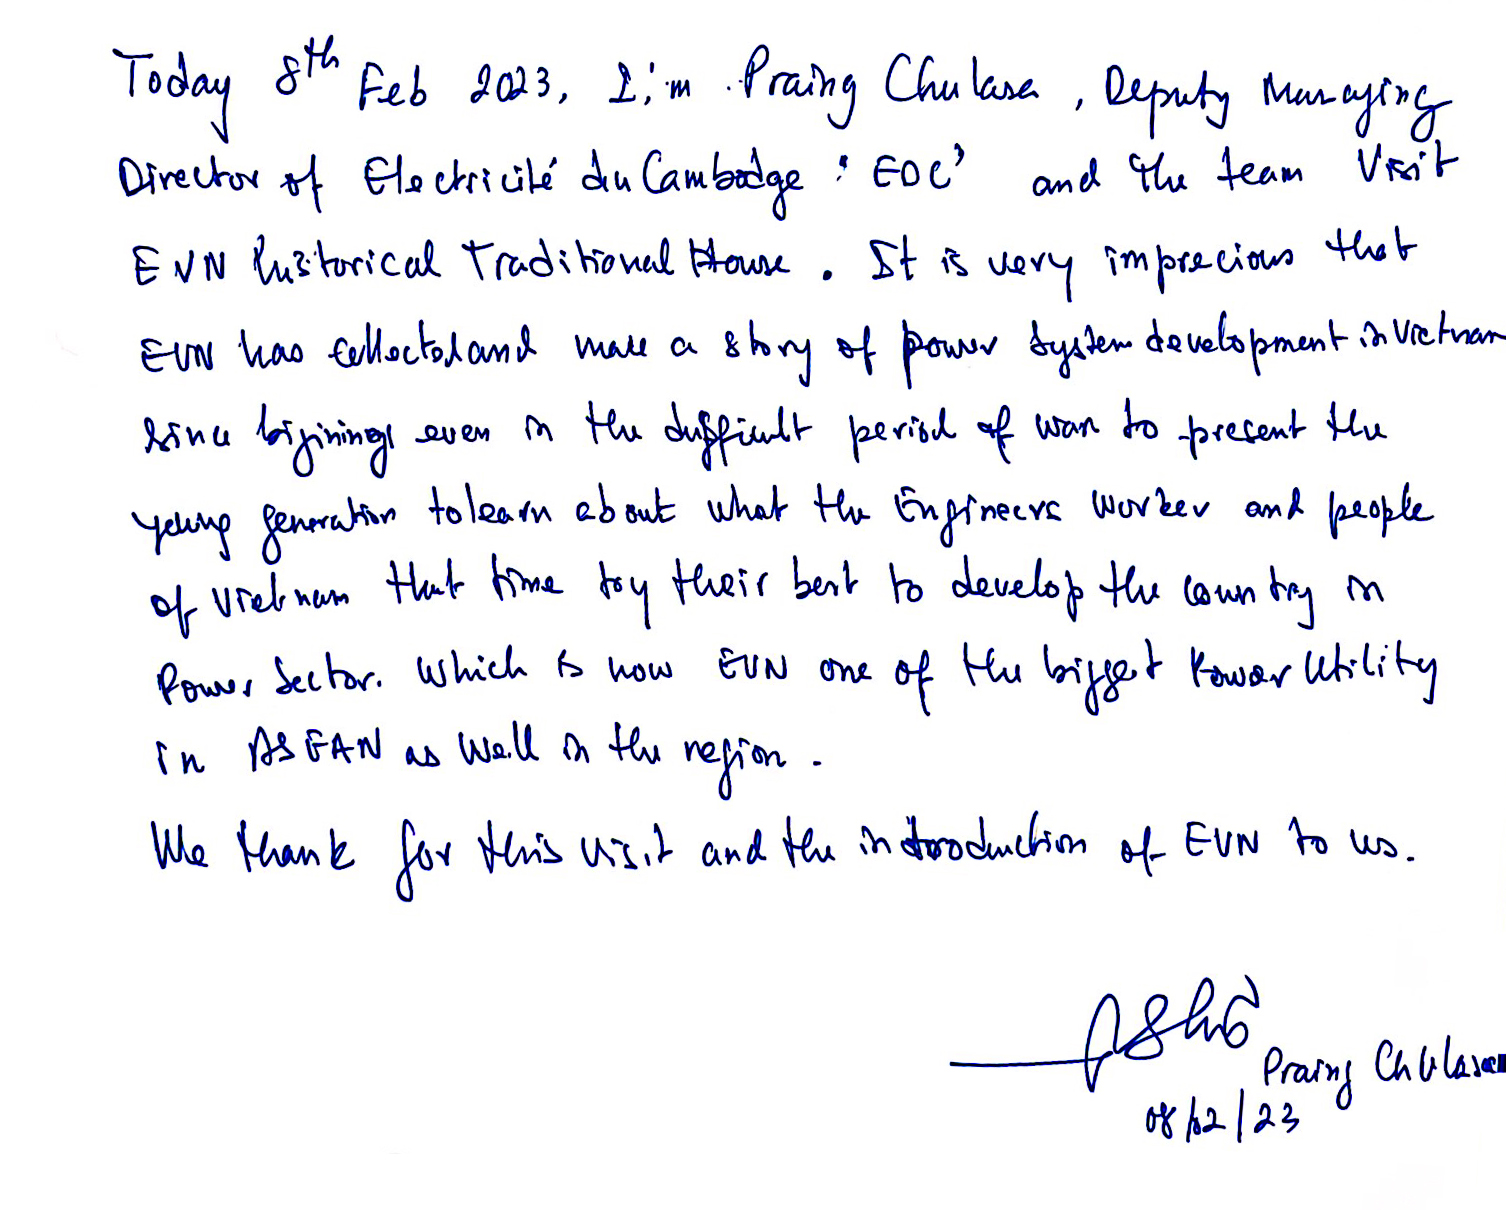 Today 8th Feb 2023, I'm Praing Chulasa, Deputy Managing
Director of Electricité du Cambodge 'EDC' and the team Visit
EVN historical Traditional House. It is very imprecious that
EVN has collected and make a story of power system development in Vietnam
since bigining even in the difficult period of war to present the
young generation to learn about what the Engineers worker and people
of Vietnam that time try their best to develop the country in
Power Sector. Which is now EVN one of the biggest Power Utility
in ASEAN as well in the region.
We thank for this visit and the introduction of EVN to us.
Praing Chulasa
08/02/23